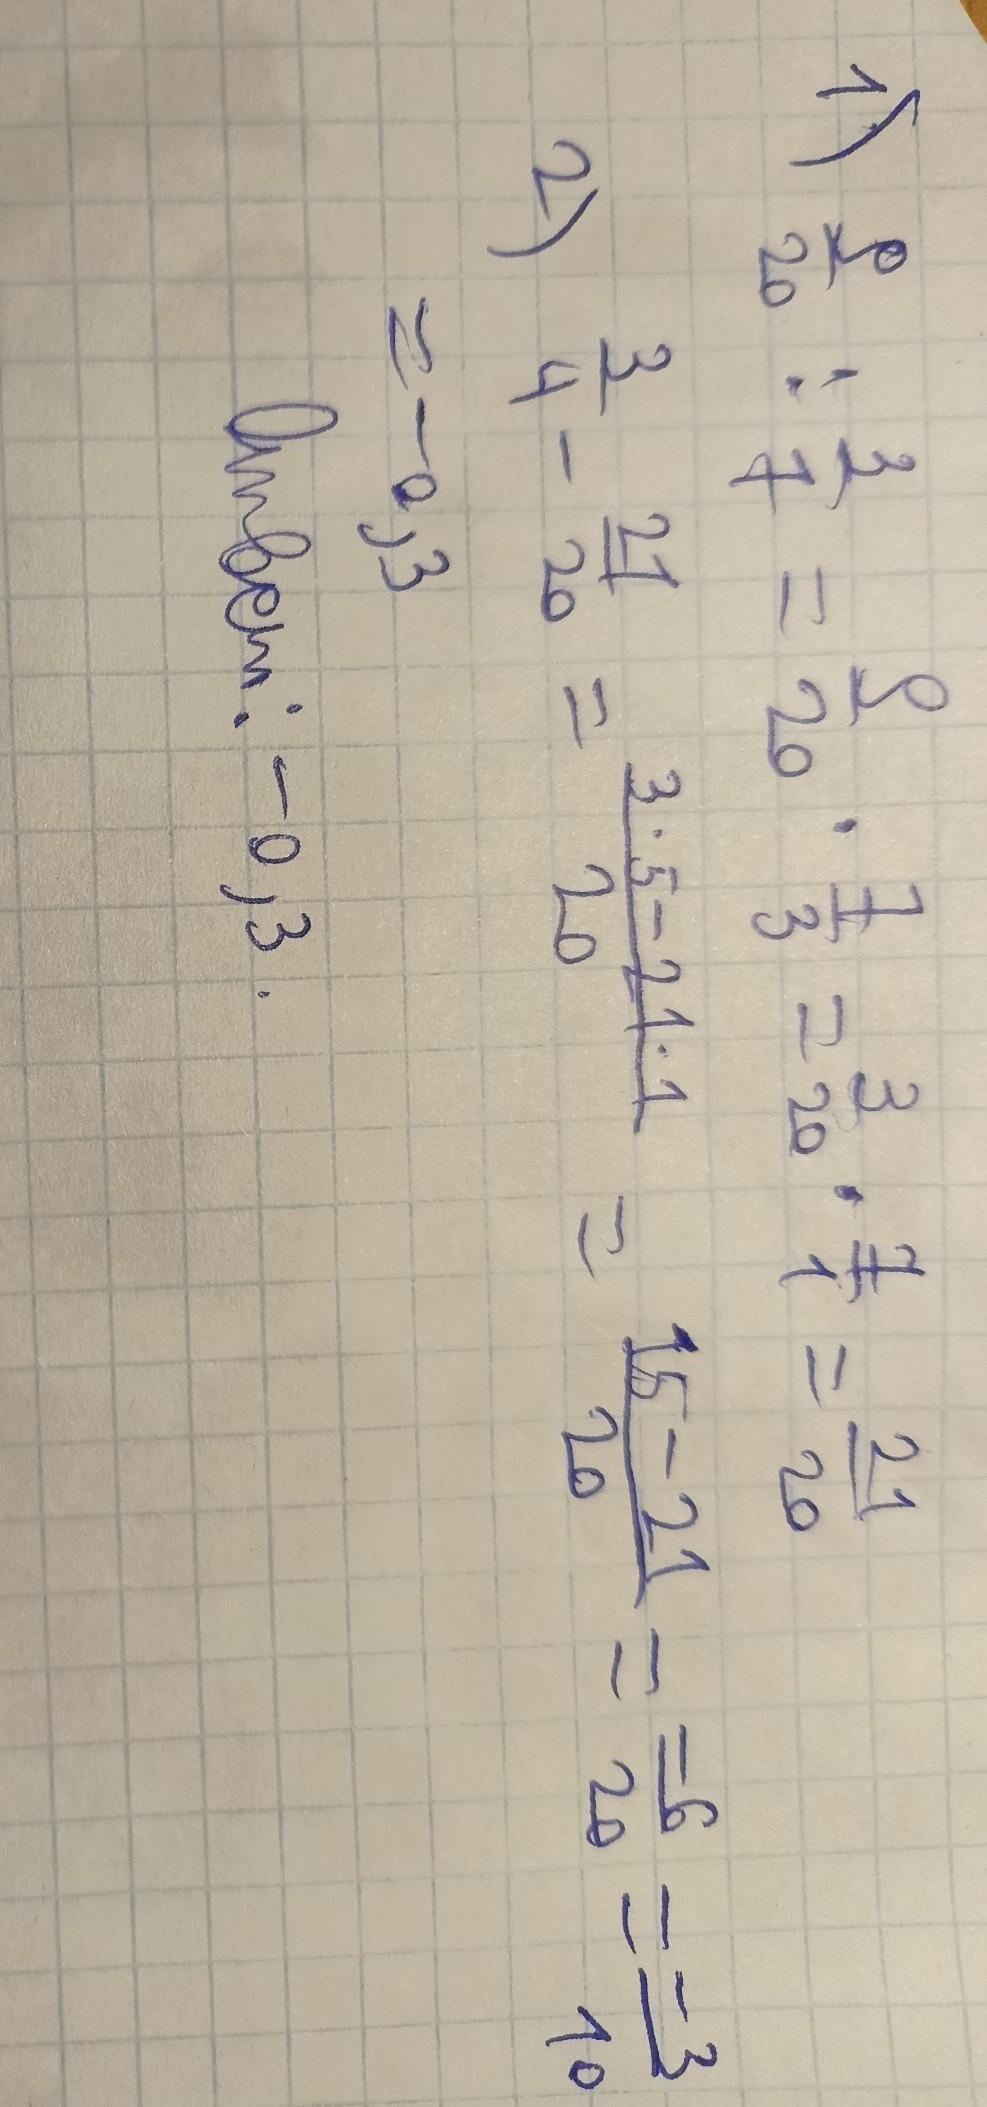 1) 9/20 : 3/7 = 9/20 · 7/3 = 3/20 · 7/1 = 21/20
2) 3/4 - 21/20 = 3·5-21·1/20 = 15-21/20 = -6/20 = -3/10
= -0,3
Ответ: -0,3.